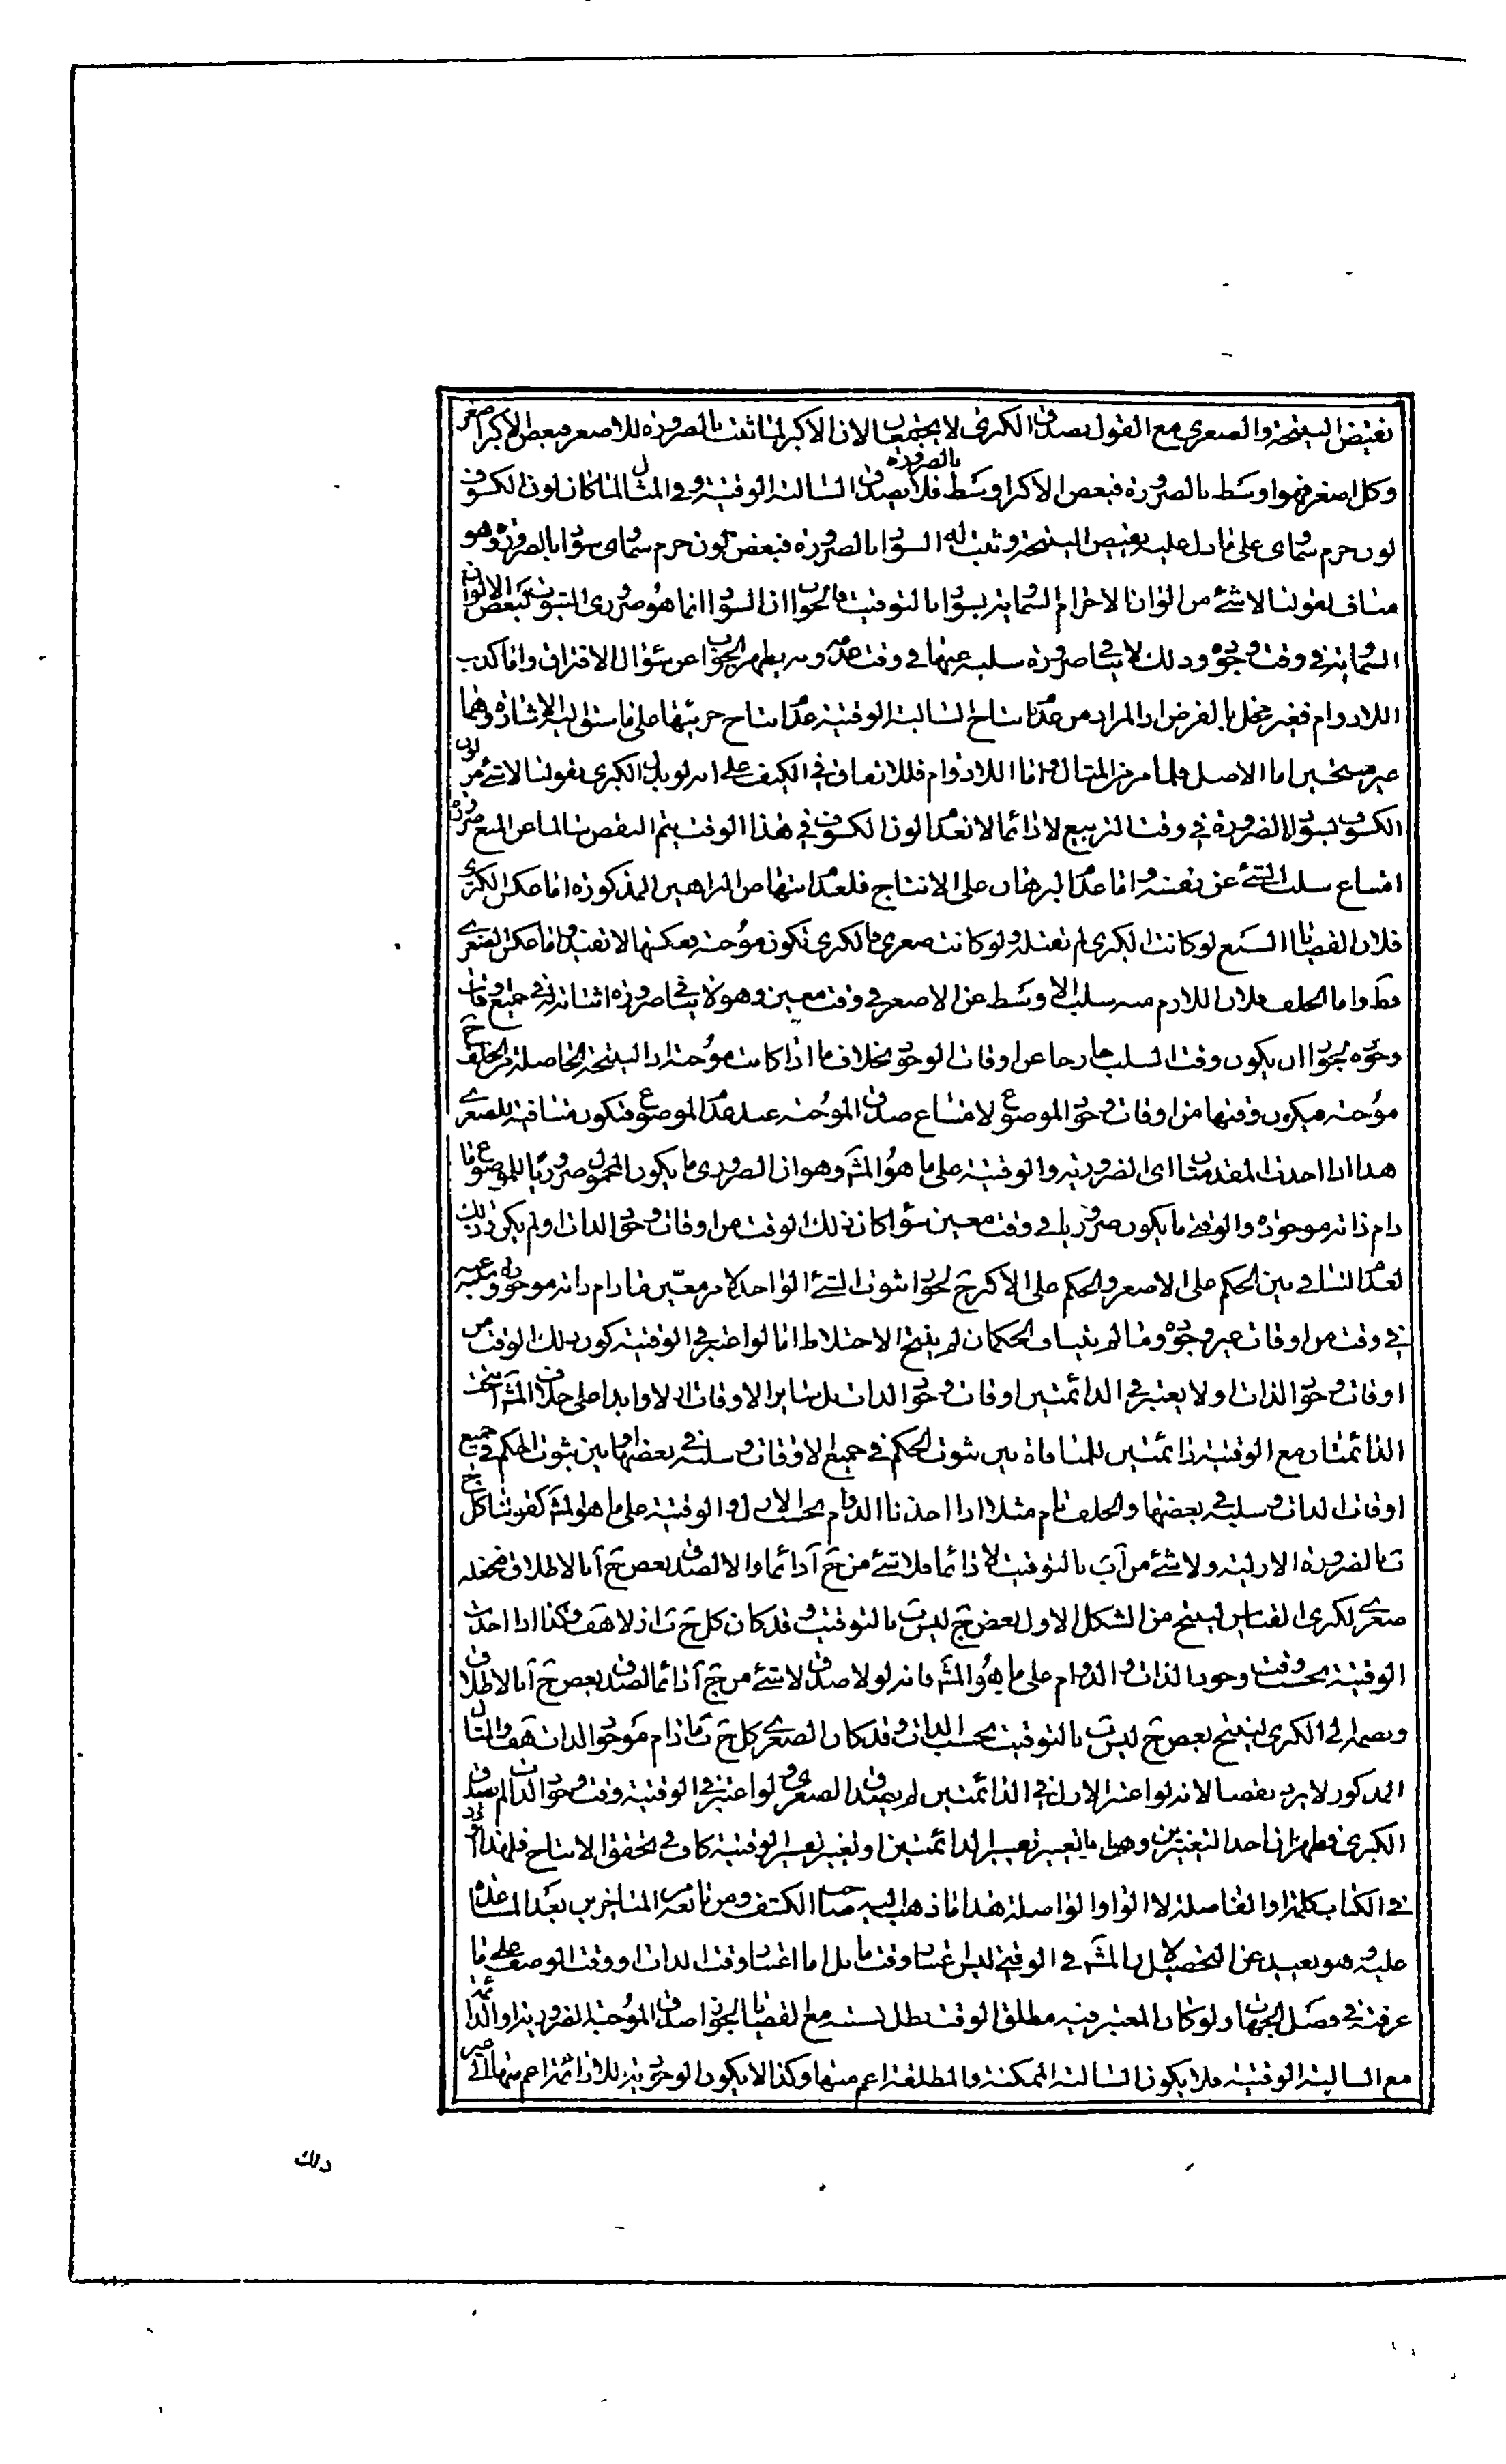 نقيض النتيجة والصغرى مع القول بصدق الكبرى لا يجتمعان لان الاكبر لما ثبت بالضرورة للاصغر فبعض الاكبر اصغر
وكل اصغر فهو اوسط بالضرورة فبعض الاكبر اوسط بالضرورة فلا يصدق السالبة الوقتية وفي المثال لما كان لون الكسوف
لون جرم سماوى على ما دل عليه نقيض النتيجة وثبت له السواد بالضرورة فبعض لون جرم سماوى سواد بالضرورة وهو
مناف لقولنا لا شئ من الوان الاجرام السماوية بسواد بالتوقيت فالجواب ان السواد انما هو ضرورى الثبوت لبعض الالوان
السماوية في وقت وجوده وذلك لا ينافي ضرورة سلبه عنها في وقت عدمه وبه يظهر الجواب عن سؤال الاقتران واما كذب
اللادوام فغير مخل بالغرض اذ المراد من عدم انتاج السالبة الوقتية عدم انتاج جزئيها على ما سبق اليه الاشارة وهما
غير منتجين اما الاصل فلما مر من المثال واما اللادوام فللاتفاق في الكيف على انه لو بدل الكبرى بقولنا لا شئ من لون
الكسوف بسواد بالضرورة في وقت التربيع لا دائما لانعدام لون الكسوف في هذا الوقت يتم النقض سالما عن المنع ضرورة
امتناع سلب الشئ عن نفسه واما عدم البرهان على الانتاج فلعدم انتهاض البراهين المذكورة اما عكس الكبرى
فلان القضايا السبع لو كانت الكبرى لم تقبله ولو كانت صغرى فالكبرى تكون موجبة وعكسها لا تفيد واما عكس الصغرى
فظ واما الخلف فلان اللازم منه سلب الاوسط عن الاصغر في وقت معين وهو لا ينافي ضرورة اثباته له في جميع اوقات
وجوده لجواز ان يكون وقت السلب خارجا عن اوقات الوجود بخلاف ما اذا كانت موجبة اذ النتيجة الحاصلة من الخلف ح
موجبة فيكون وقتها من اوقات وجود الموضوع لامتناع صدق الموجبة عند عدم الموضوع فتكون منافية للصغرى
هذا اذا اخذت المقدمتان اى الضرورية والوقتية على ما هو المشه وهو ان الضرورى ما يكون المحمول ضروريا للموضوع ما
دام ذاته موجودة والوقتى ما يكون ضروريا في وقت معين سواء كان ذلك الوقت من اوقات وجود الذات او لم يكن ذلك
لعدم التنافي بين الحكم على الاصغر والحكم على الاكبر ح لجواز ثبوت الشئ الواحد لامر معين ما دام ذاته موجودة وسلبه عنه
في وقت من اوقات غير وجوده وما لم يتناف الحكمان لم ينتج الاختلاط اما لو اعتبر في الوقتية كون ذلك الوقت من
اوقات وجود الذات او لا يعتبر في الدائمتين اوقات وجود الذات بل ساير الاوقات ازلا وابدا على خلاف المشه انتجت
الدائمتان مع الوقتية دائمتين للمنافاة بين ثبوت الحكم في جميع الاوقات وسلبه في بعضها او بين ثبوت الحكم في جميع
اوقات الذات وسلبه في بعضها والخلف تام مثلا اذا اخذنا الدوام بحسب الازل والوقتية على ما هو المشه كقولنا كل ج
ب بالضرورة الازلية ولا شئ من آ ب بالتوقيت لا دائما فلا شئ من ج آ دائما والا لصدق بعض ج آ بالاطلاق فنجعله
صغرى لكبرى القياس لينتج من الشكل الاول بعض ج ليس ب بالتوقيت وقد كان كل ج ب ازلا هف وكذا اذا اخذت
الوقتية بحسب وقت وجود الذات والدوام على ما هو المشه فانه لو لا صدق لا شئ من ج آ دائما لصدق بعض ج آ بالاطلاق
ويضم الى الكبرى لينتج بعض ج ليس ب بالتوقيت بحسب الذات وقد كان الصغرى كل ج ب ما دام موجود الذات هف والمثال
المذكور لا يرد نقضا لانه لو اعتبر الازل في الدائمتين لم يصدق الصغرى ولو اعتبر في الوقتية وقت وجود الذات لم يصدق
الكبرى فظهر ان احد التغيرين وهما ما تغيير تفسير الدائمتين او تغيير تفسير الوقتية كاف في تحقق الانتاج فلهذا اورد
في الكتاب كلمة او الفاصلة لا الواو الواصلة هذا ما ذهب اليه صاحب الكشف ومن تابعه من المتاخرين بعد المساعدة
عليه هو بعيد عن التحصيل لان المشه في الوقتى ليس اعتبار وقت ما بل اما اعتبار وقت الذات او وقت الوصف على ما
عرفته في فصل الجهات ولو كان المعتبر فيه مطلق الوقت بطل نسبته مع القضايا لجواز صدق الموجبة الضرورية او الدائمة
مع السالبة الوقتية فلا يكون السالبة الممكنة والمطلقة اعم منها وكذا لا يكون الوجودية اللادائمة اعم منها الى غير
ذلك